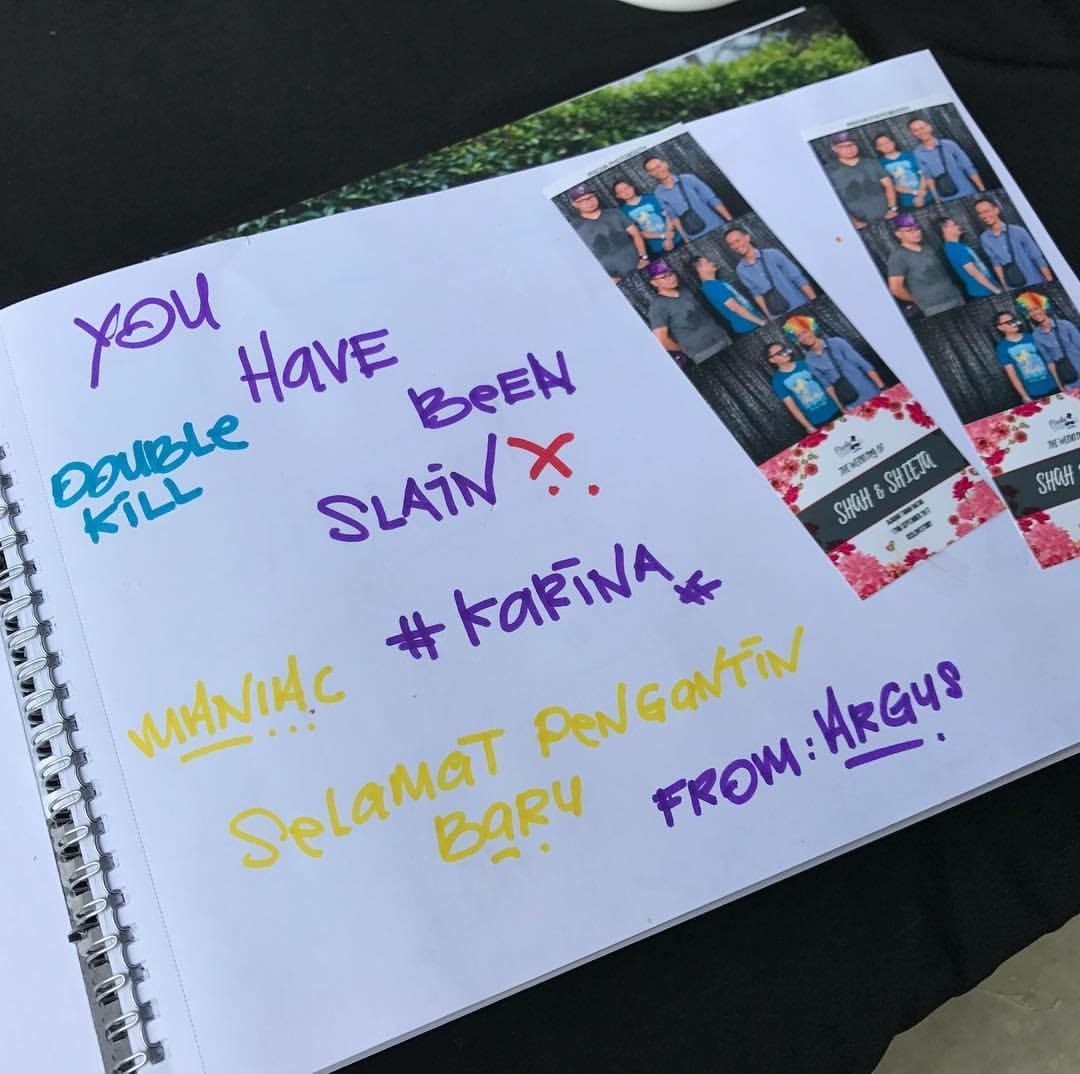 YOU
HAVE
BEEN
DOUBLE
KILL
SLAIN X..
#KARINA#
MANIAC...
SELAMAT PENGANTIN
BARU
FROM: ARGUS.
THE WEDDING OF
SHAH & SHIEJA
THE WEDDING
SHAH